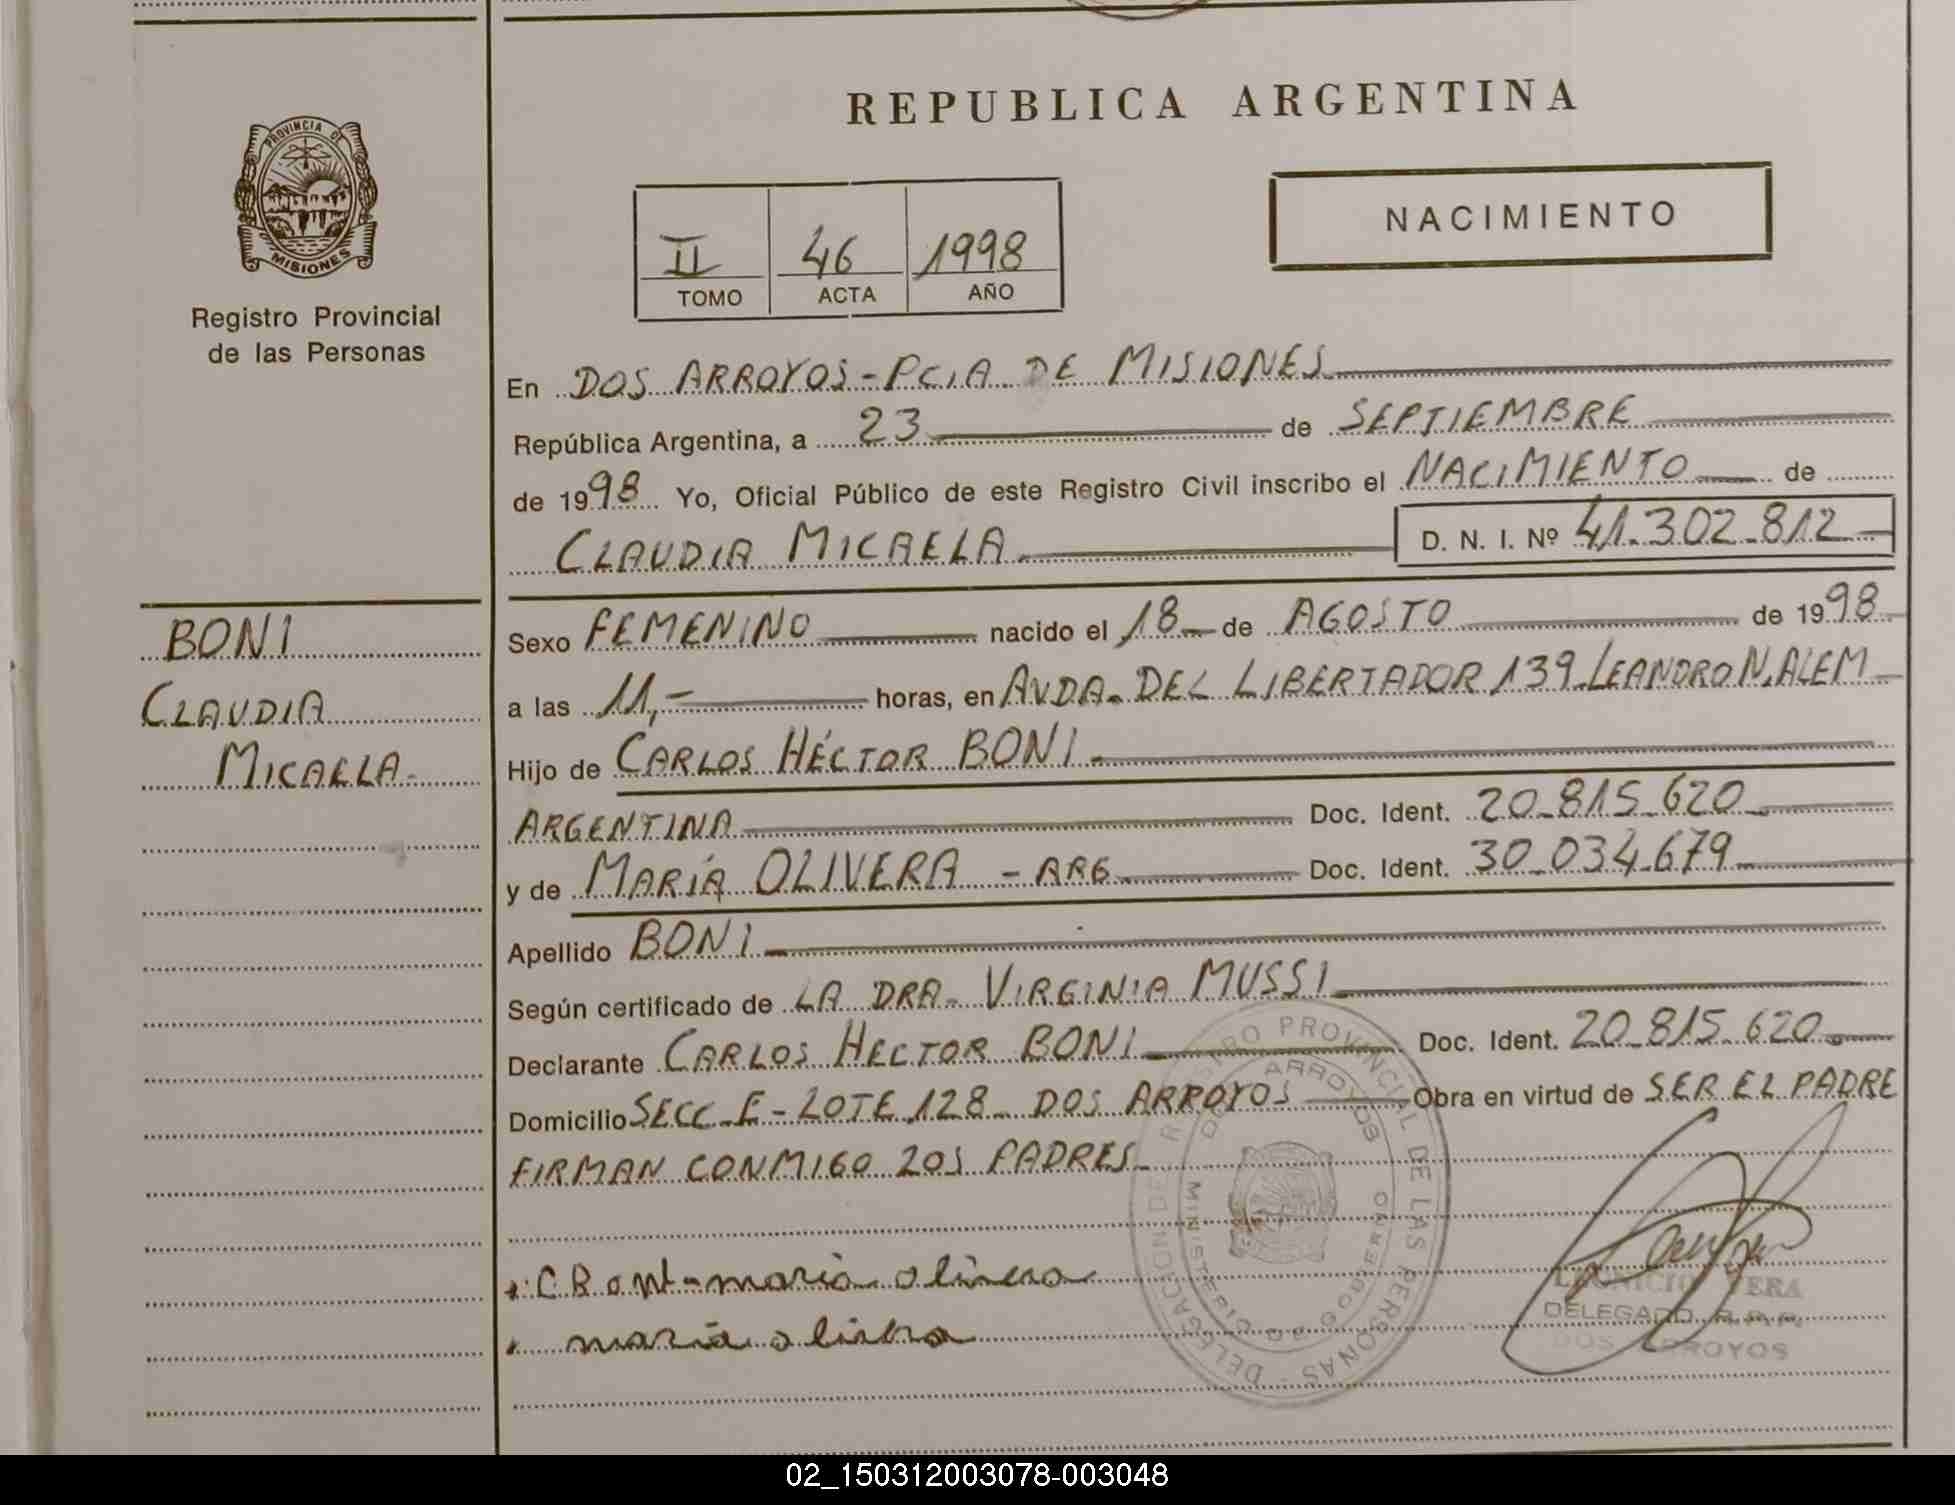 REPUBLICA ARGENTINA
PROVINCIA DE
MISIONES
Registro Provincial
de las Personas
NACIMIENTO
II 46 1998
TOMO ACTA AÑO
En DOS ARROYOS - PCIA DE MISIONES
República Argentina, a 23 de SEPTIEMBRE
de 1998 Yo, Oficial Público de este Registro Civil inscribo el NACIMIENTO de
CLAUDIA MICAELA D. N. I. Nº 41.302.812
BONI
CLAUDIA
MICAELA.
Sexo FEMENINO nacido el 18 de AGOSTO de 1998
a las 11,- horas, en AVDA. DEL LIBERTADOR 139 LEANDRO N. ALEM
Hijo de CARLOS HÉCTOR BONI
ARGENTINA Doc. Ident. 20.815.620
y de MARÍA OLIVERA - ARG Doc. Ident. 30.034.679
Apellido BONI
Según certificado de LA DRA. VIRGINIA MUSSI
Declarante CARLOS HECTOR BONI Doc. Ident. 20.815.620
Domicilio SECC. E - LOTE 128 DOS ARROYOS Obra en virtud de SER EL PADRE
FIRMAN CONMIGO LOS PADRES
maria olivera
DELEGACION DEL REGISTRO PROVINCIAL DE LAS PERSONAS
DOS ARROYOS
MINISTERIO DE GOBIERNO
VERA
DELEGADO R.P.P.
DOS ARROYOS
02_150312003078-003048